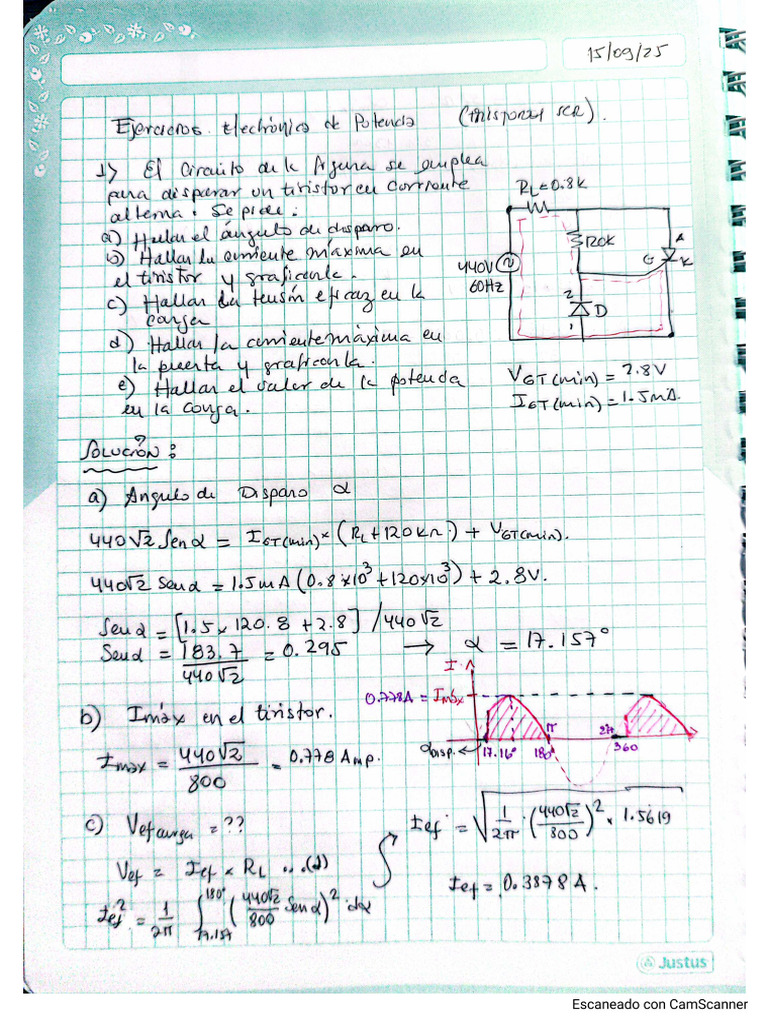 15/09/25
Ejercicios. Electrónica de Potencia
1) El Circuito de la figura se emplea
para disparar un tiristor en corriente
alterna. Se pide:
a) Hallar el ángulo de disparo.
b) Hallar la corriente máxima en
el tiristor y graficarla.
c) Hallar la tensión eficaz en la
carga
d) Hallar la corriente máxima en
la puerta y graficarla.
e) Hallar el valor de la potencia
en la carga.
RL=0.8K
120K
440V
60Hz
G
A
K
2
D
1
VGT(min) = 2.8V
IGT(min) = 1.5mA.
Solución:
a) Angulo de Disparo α
440√2 Sen α = IGT(min)* (RL+120KΩ) + VGT(min).
440√2 Sen α = 1.5mA (0.8*10³ +120*10³) + 2.8V.
Sen α = [1.5 x 120.8 + 2.8] / 440√2
Sen α = 183.7/440√2 = 0.295 → α = 17.157°
b) Imáx en el tiristor.
Imax = 440√2/800 = 0.778 Amp.
I
0.778A = Imáx
αDisp. ← 17.16° 180° π 2π 360
c) Vef carga = ??
Vef = Ief x RL ...(1)
Ief² = 1/2π ∫17.157^180° (440√2/800 Sen α)² dα
Ief = √1/2π · (440√2/800)² x 1.5619
Ief = 0.3878 A.
Justus
Escaneado con CamScanner